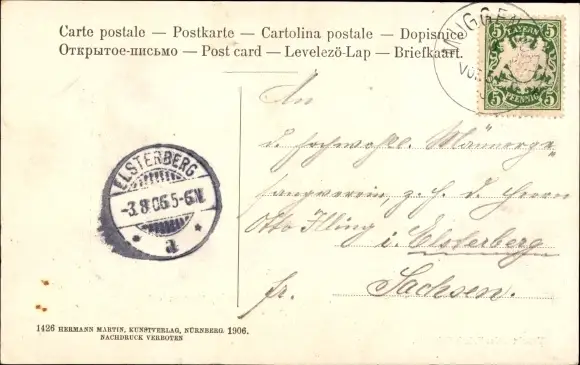 Carte postale — Postkarte — Cartolina postale — Dopisnice
Открытое-письмо — Post card — Levelező-Lap — Briefkaart.
MUGGEN
BAYERN
5 5
5 5
PFENNIG
ELSTERBERG
-3.8.06.5-6.N.
* a *
An
d. hochwohll. Männerge=
sangverein, z. H. d. Herrn
Otto Illing i. Elsterberg
fr. Sachsen.
1426 HERMANN MARTIN, KUNSTVERLAG, NÜRNBERG. 1906.
NACHDRUCK VERBOTEN